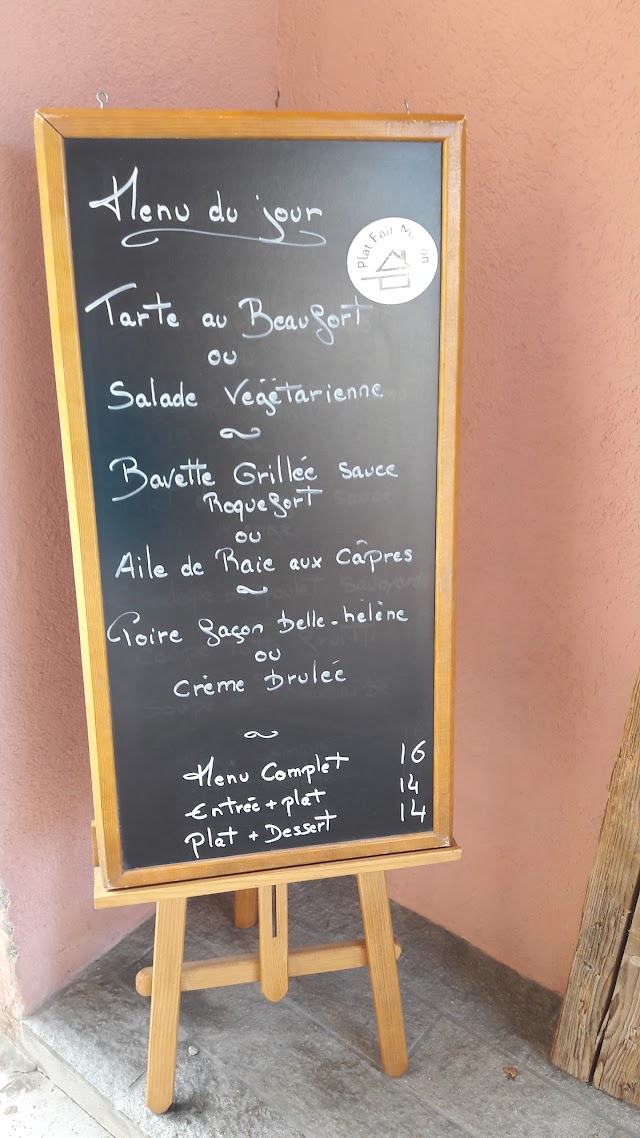 Menu du jour
Plat Fait Maison
Tarte au Beaufort
ou
Salade Végétarienne
Bavette Grillée sauce
Roquefort
ou
Aile de Raie aux Câpres
Poire façon Belle-hélène
ou
Crème Brulée
Menu Complet 16
Entrée + plat 14
Plat + Dessert 14